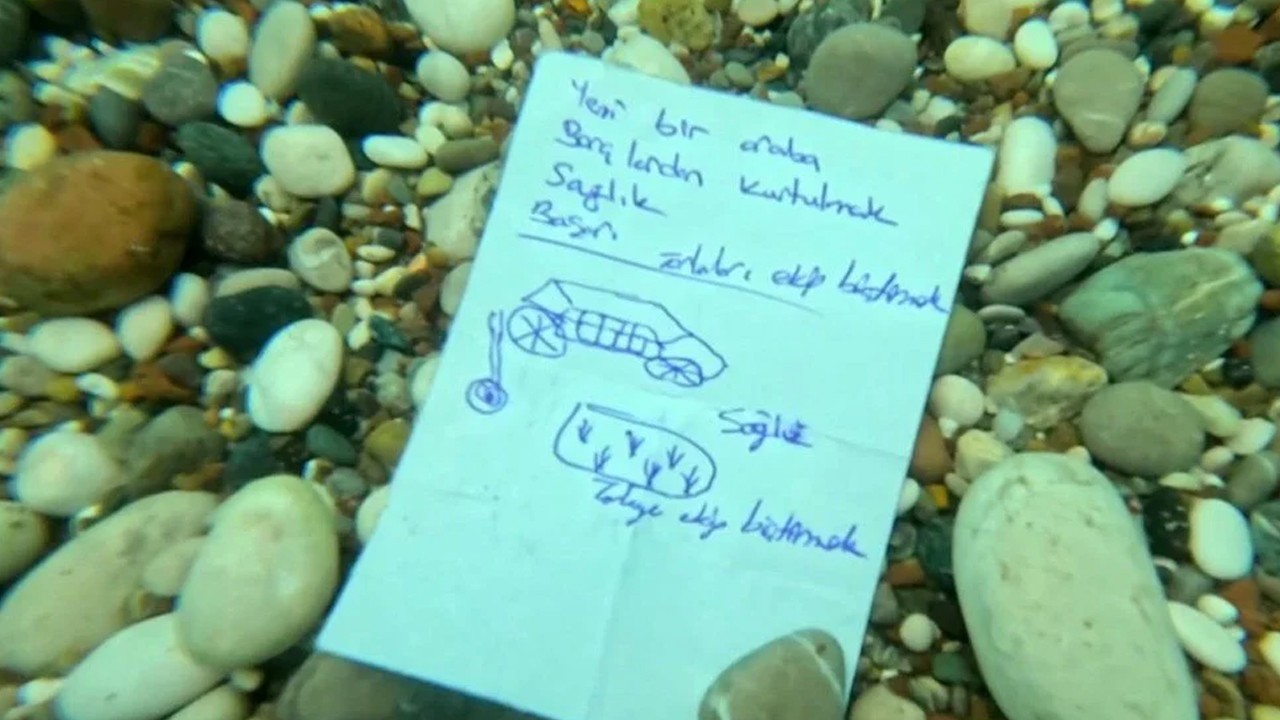 Yeni bir araba
Borçlardan kurtulmak
Sağlık
Başarı
tarlaları ekip biçtirmek
Sağlık
Tarlaya ekip biçtirmek